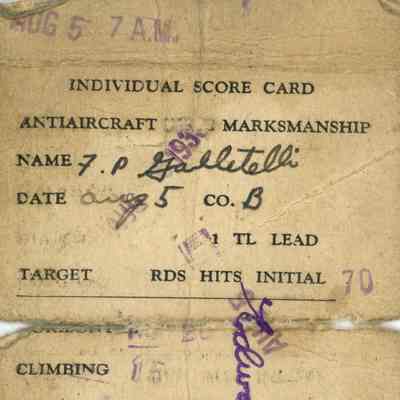 AUG 5 7 A.M.
INDIVIDUAL SCORE CARD
ANTIAIRCRAFT MARKSMANSHIP
193
NAME F. P Galletelli
DATE Aug 5 CO. B
1 TL LEAD
TARGET RDS HITS INITIAL 70
HORIZONT
CLIMBING 15